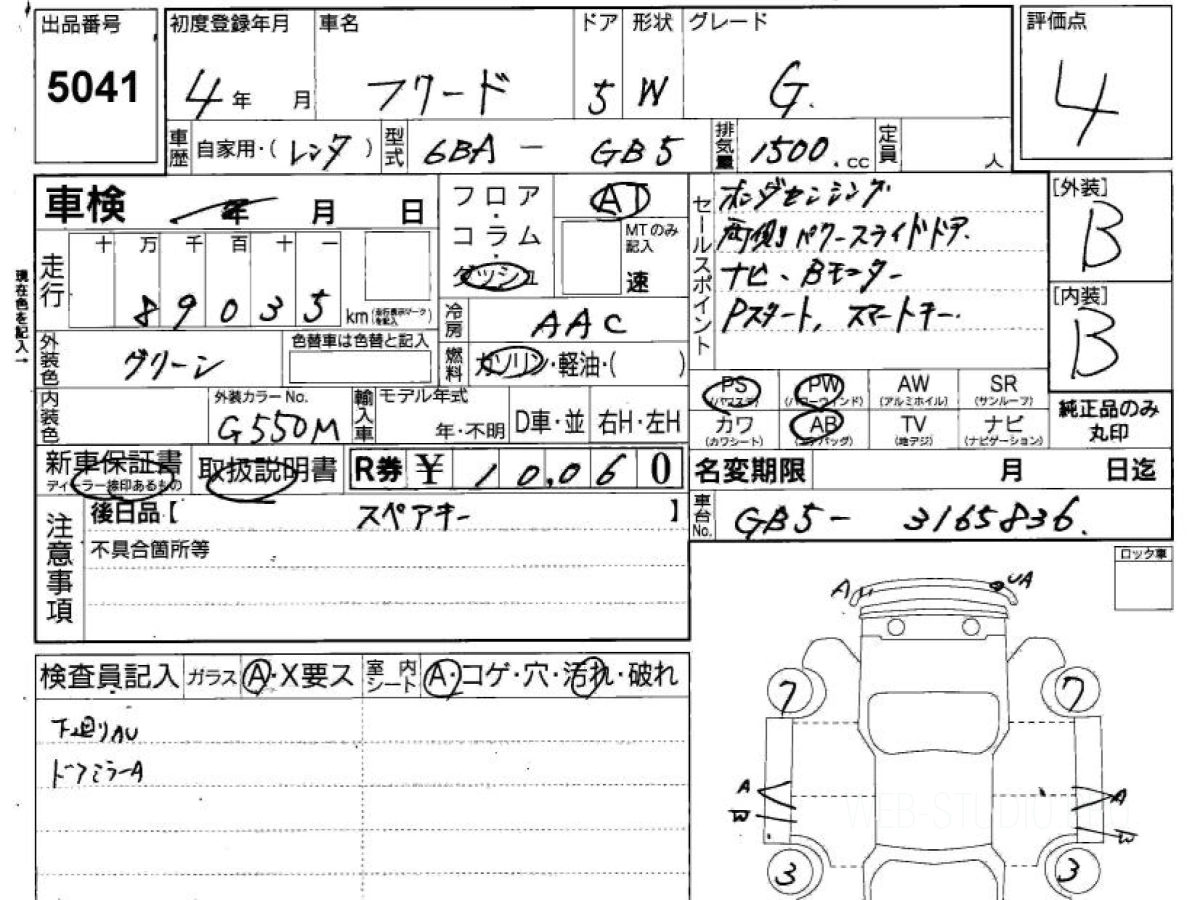 出品番号
5041
初度登録年月
4年 月
車名
フリード
ドア
5
形状
W
グレード
G.
評価点
4
車歴 自家用・(レンタ)
型式 6BA - GB5
排気量 1500.cc
定員 人
車検 年 月 日
走行
十 万 千 百 十 一
8 9 0 3 5 km(走行表示マークを記入)
現在色を記入→
外装色 グリーン
色替車は色替と記入
内装色
外装カラーNo.
G550M
輸入車
モデル年式
年・不明
D車・並
右H・左H
フロア・コラム・ダッシュ
AT
MTのみ記入
速
冷房 AAC
燃料 ガソリン・軽油・( )
セールスポイント
ホンダセンシング
両側パワースライドドア.
ナビ、Bモニター
Pスタート, スマートキー.
[外装]
B
[内装]
B
PS (パワステ)
PW (パワーウインド)
AW (アルミホイル)
SR (サンルーフ)
カワ (カワシート)
AB (エアバッグ)
TV (地デジ)
ナビ (ナビゲーション)
純正品のみ丸印
新車保証書
ディーラー捺印あるもの
取扱説明書
R券 ¥ 10,060
名変期限 月 日迄
車台No. GB5- 3165836.
注意事項
後日品【 スペアキー 】
不具合箇所等
ロック車
検査員記入
ガラス A・X要ス
室内シート A・コゲ・穴・汚れ・破れ
下廻りAU
ドアミラーA
A
UA
7
7
A
W
A
W
3
3
WEB-STUDIO